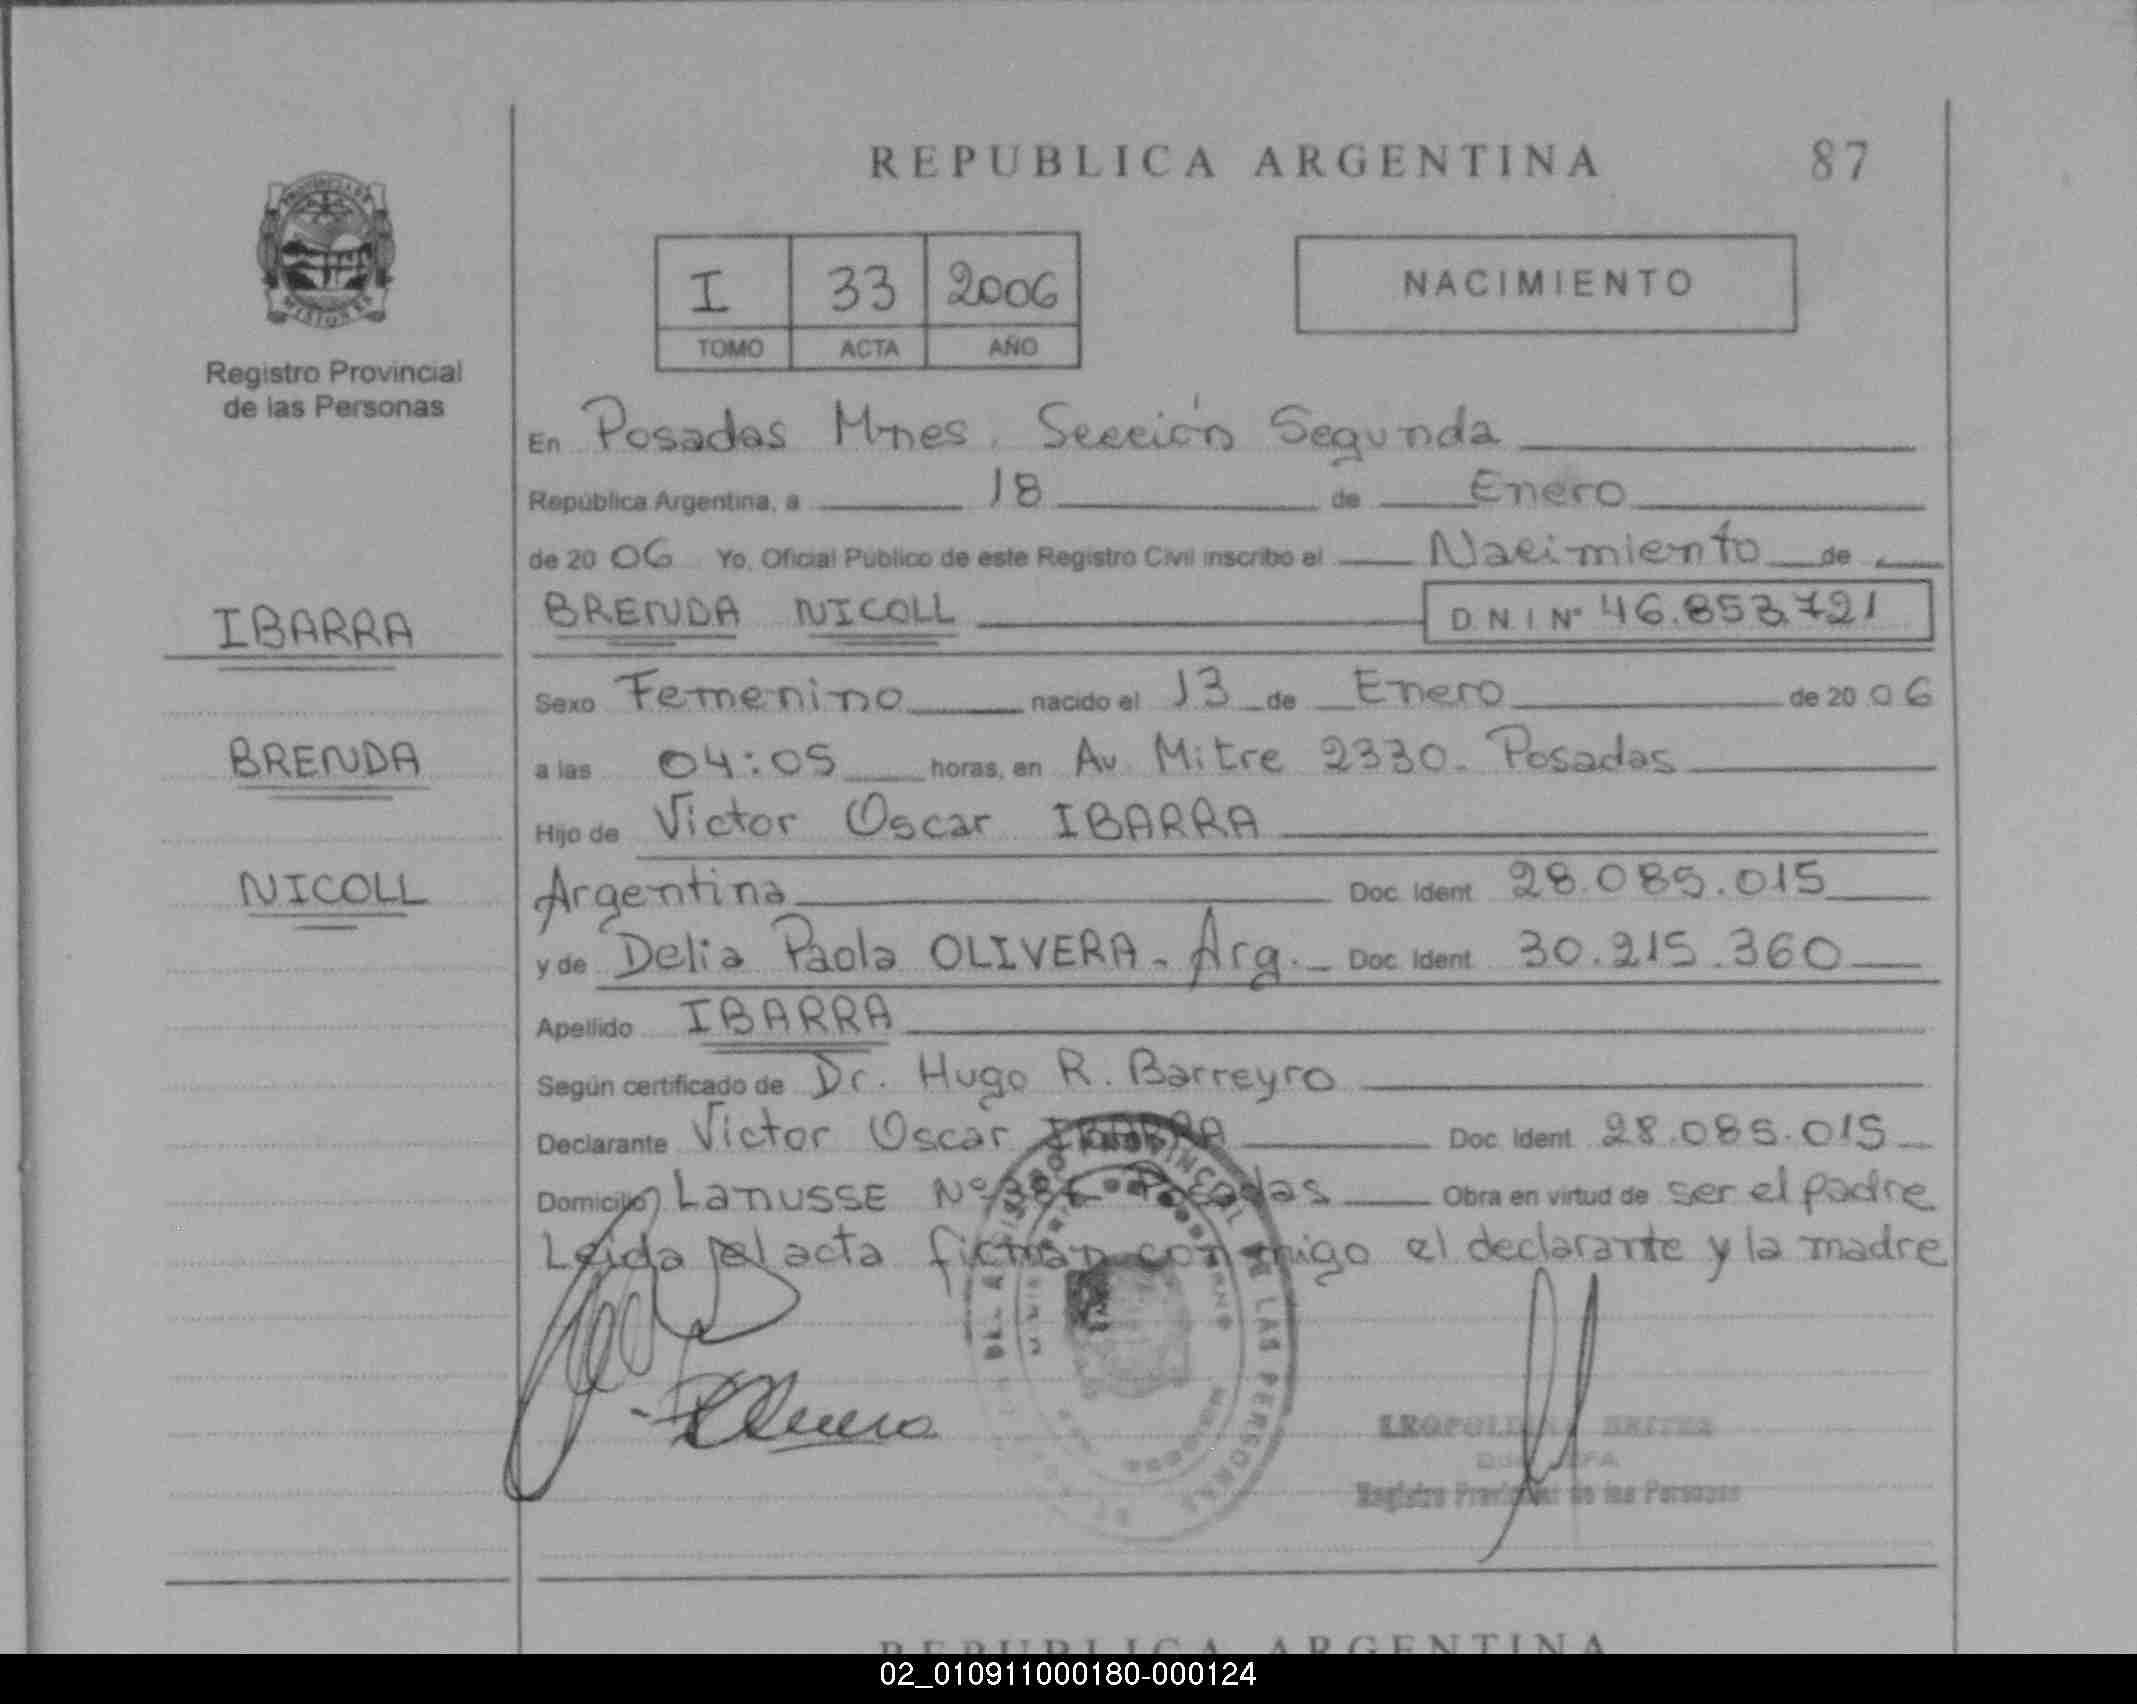 REPUBLICA ARGENTINA 87
I 33 2006
TOMO ACTA AÑO
NACIMIENTO
Registro Provincial
de las Personas
En Posadas Mnes. Sección Segunda
República Argentina, a 18 de Enero
de 20 06 Yo, Oficial Público de este Registro Civil inscribo el Nacimiento de
IBARRA
BRENDA NICOLL D.N.I Nº 46.853.721
Sexo Femenino nacido el 13 de Enero de 20 06
BRENDA
a las 04:05 horas, en Av. Mitre 2330. Posadas
Hijo de Victor Oscar IBARRA
NICOLL
Argentina Doc. Ident. 28.085.015
y de Delia Paola OLIVERA - Arg. Doc. Ident. 30.215.360
Apellido IBARRA
Según certificado de Dr. Hugo R. Barreyro
Declarante Victor Oscar IBARRA Doc. Ident. 28.085.015
Domicilio Lanusse Nº Posadas Obra en virtud de ser el padre
Leida el acta firman conmigo el declarante y la madre
DE LAS PERSONAS
Registro Provincial de las Personas
REPUBLICA ARGENTINA
02_010911000180-000124